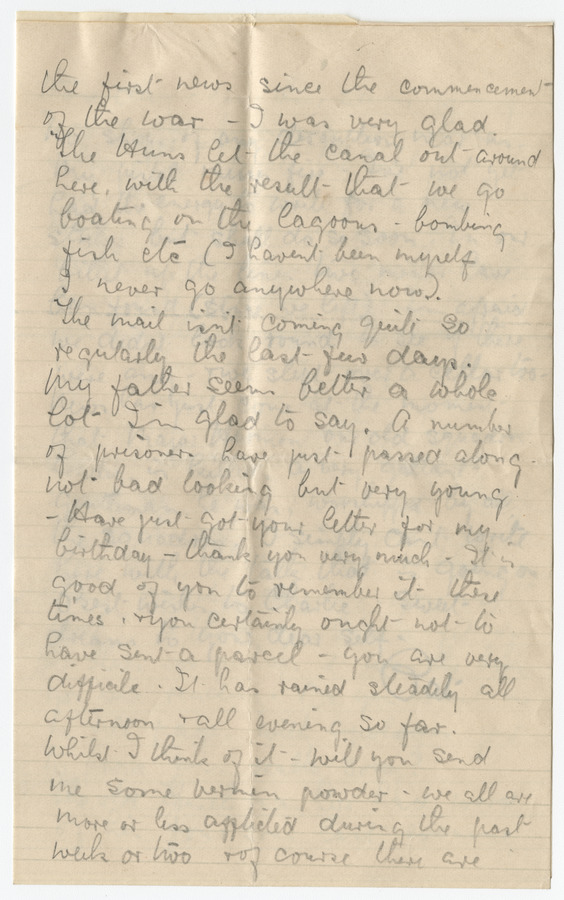 the first news since the commencement
of the war - I was very glad.
The Huns let the canal out around
here, with the result that we go
boating on the lagoons - bombing
fish etc (I haven't been myself
I never go anywhere now).
The mail isn't coming quite so
regularly the last few days.
My father seems better a whole
lot I'm glad to say. A number
of prisoners have just passed along -
not bad looking but very young
- Have just got your letter for my
birthday - thank you very much - It is
good of you to remember it these
times, & you certainly ought not to
have sent a parcel - you are very
difficile. It has rained steadily all
afternoon & all evening so far.
Whilst I think of it - will you send
me some vermin powder - we all are
more or less afflicted during the past
week or two & of course there are